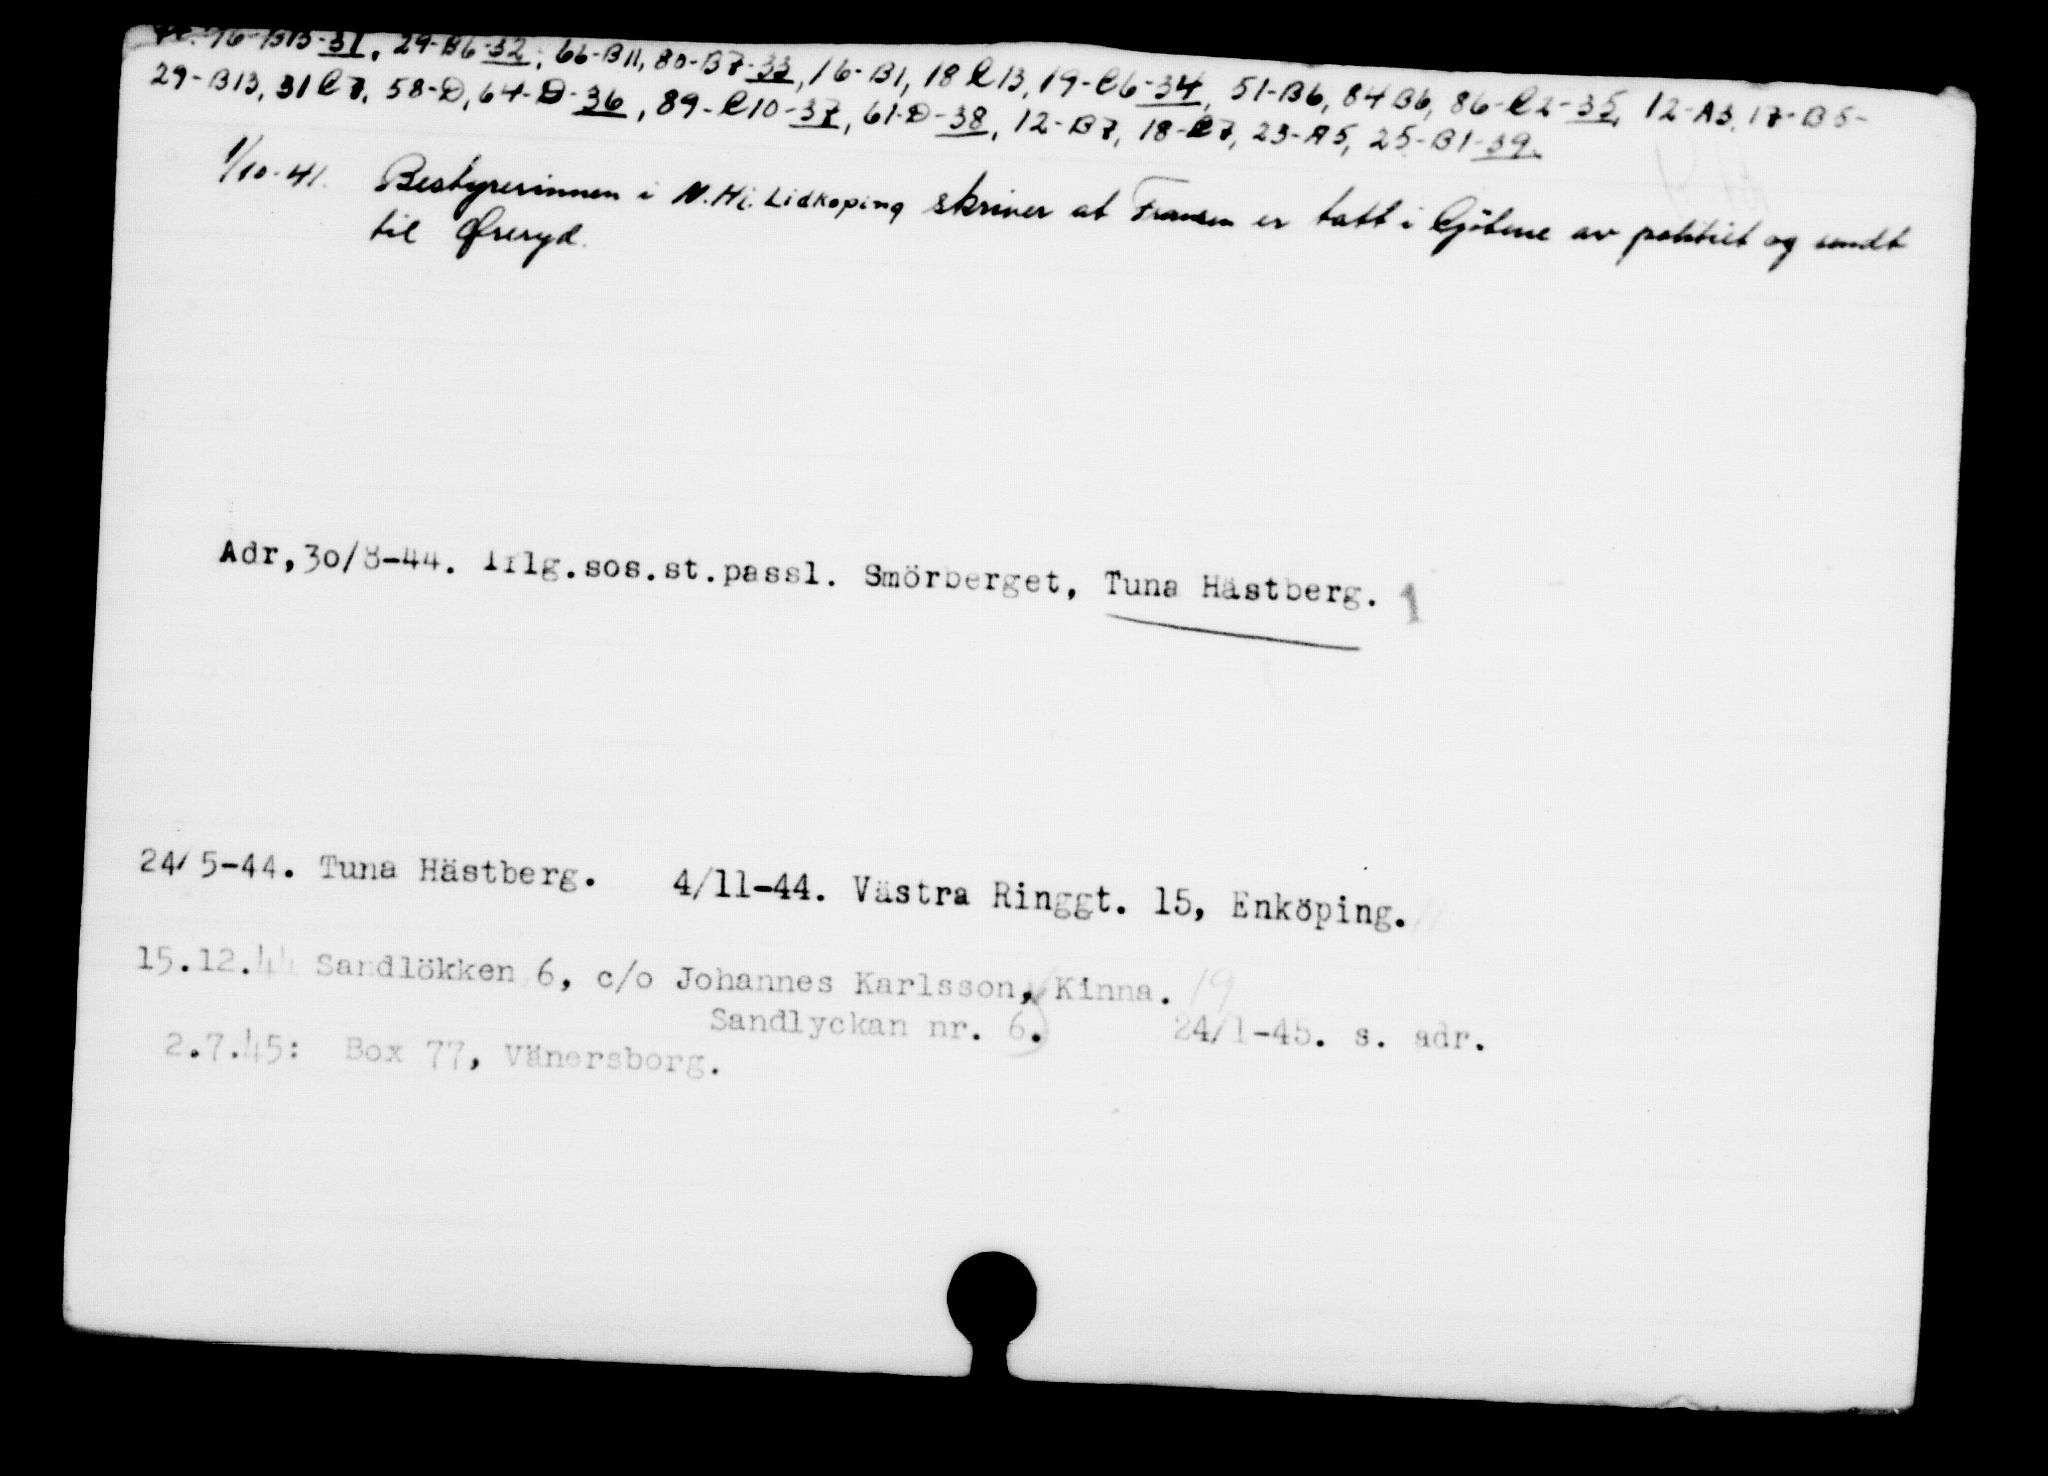 76-B13-31, 29-B6-32, 66-B11, 80-B7-33, 16-B1, 18 C13, 19-C6-34, 51-B6, 84 B6, 86-C2-35, 12-A3, 17-B5-
29-B13, 31 C7, 58-D, 64-D-36, 89-C10-37, 61-D-38, 12-B7, 18-C7, 23-A5, 25-B1-39.
1/10-41. Bestyrerinnen i N.Hj. Lidköping skriver at Fransen er tatt i Götene av politiet og sendt
til Øreryd.
Adr,30/8-44. Iflg.sos.st.passl. Smörberget, Tuna Hästberg. 1
24/5-44. Tuna Hästberg. 4/11-44. Västra Ringgt. 15, Enköping. 11
15.12.44 Sandlökken 6, c/o Johannes Karlsson, Kinna. 19
Sandlyckan nr. 6. 24/1-45. s. adr.
2.7.45: Box 77, Vänersborg.